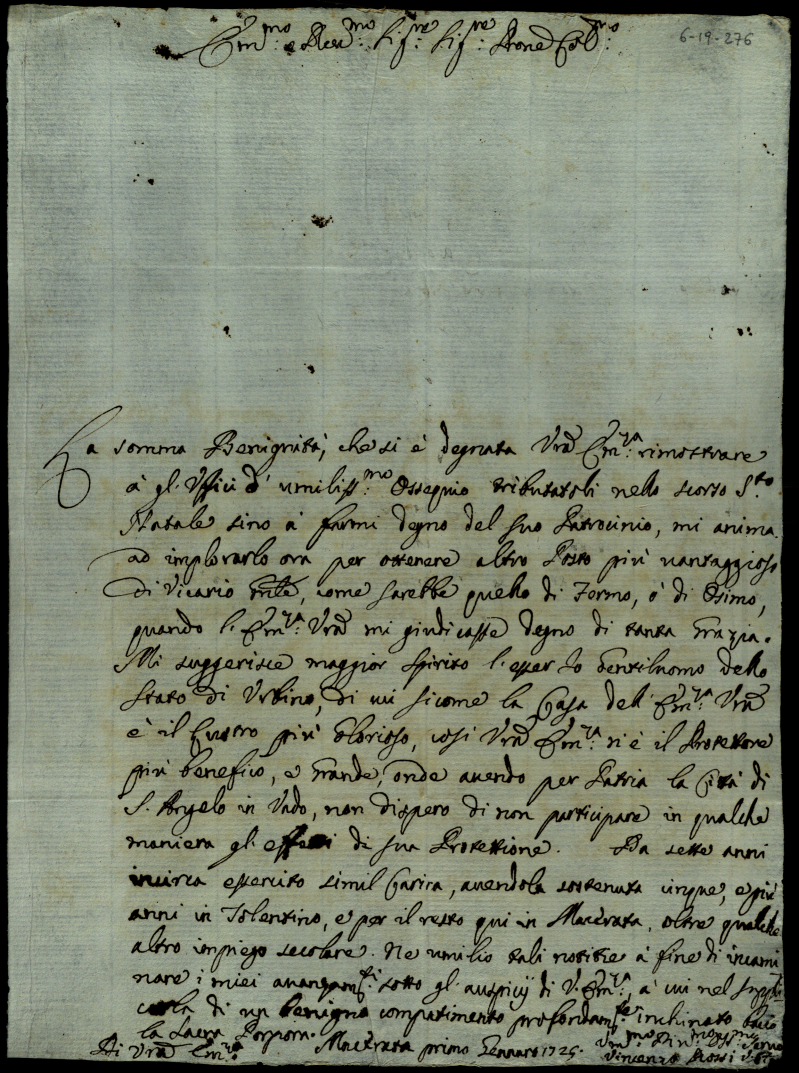 Em.mo e Rev.mo Sig.re Sig.re Prone Col.mo
6-19-276
La somma Benignità, che si è degnata Vrã Em.za rimostrare
à gl'Uffici d'umiliss.mo Ossequio tributatoli nello scorso S.to
Natale sino à farmi degno del suo Patrocinio, mi anima
ad implorarlo ora per ottenere altro Posto più vantaggioso
di Vicario Gnle, come sarebbe quello di Fermo, ò di Osimo,
quando l'Em.za Vrã mi giudicasse degno di tanta Grazia.
Mi suggerisce maggior spirito l'esser Io Gentiluomo dello
Stato di Urbino, di cui sicome la Casa dell'Em.za Vrã
è il Lustro più Glorioso, così Vrã Em.za n'è il Protettore
più benefico, e Grande, onde avendo per Patria la Città di
S. Angelo in Vado, non dispero di non participare in qualche
maniera gl'effetti di sua Protettione. Da sette anni
incirca essercito simil Carica, avendola sostenuta cinque, e più
anni in Tolentino, e per il resto qui in Macerata, oltre qualche
altro impiego secolare. Ne umilio tali notitie à fine di incami
nare i miei avanzam.ti sotto gl'auspicij di V. Em.za, à cui nel suppli
carla di un benigno compatimento profondam.te inchinato bacio
la Sacra Porpora.
Di Vrã Em.za Macerata primo Gennaro 1725.
Um.mo Div.mo Oss.mo Serv.e
Vincenzo Rossi